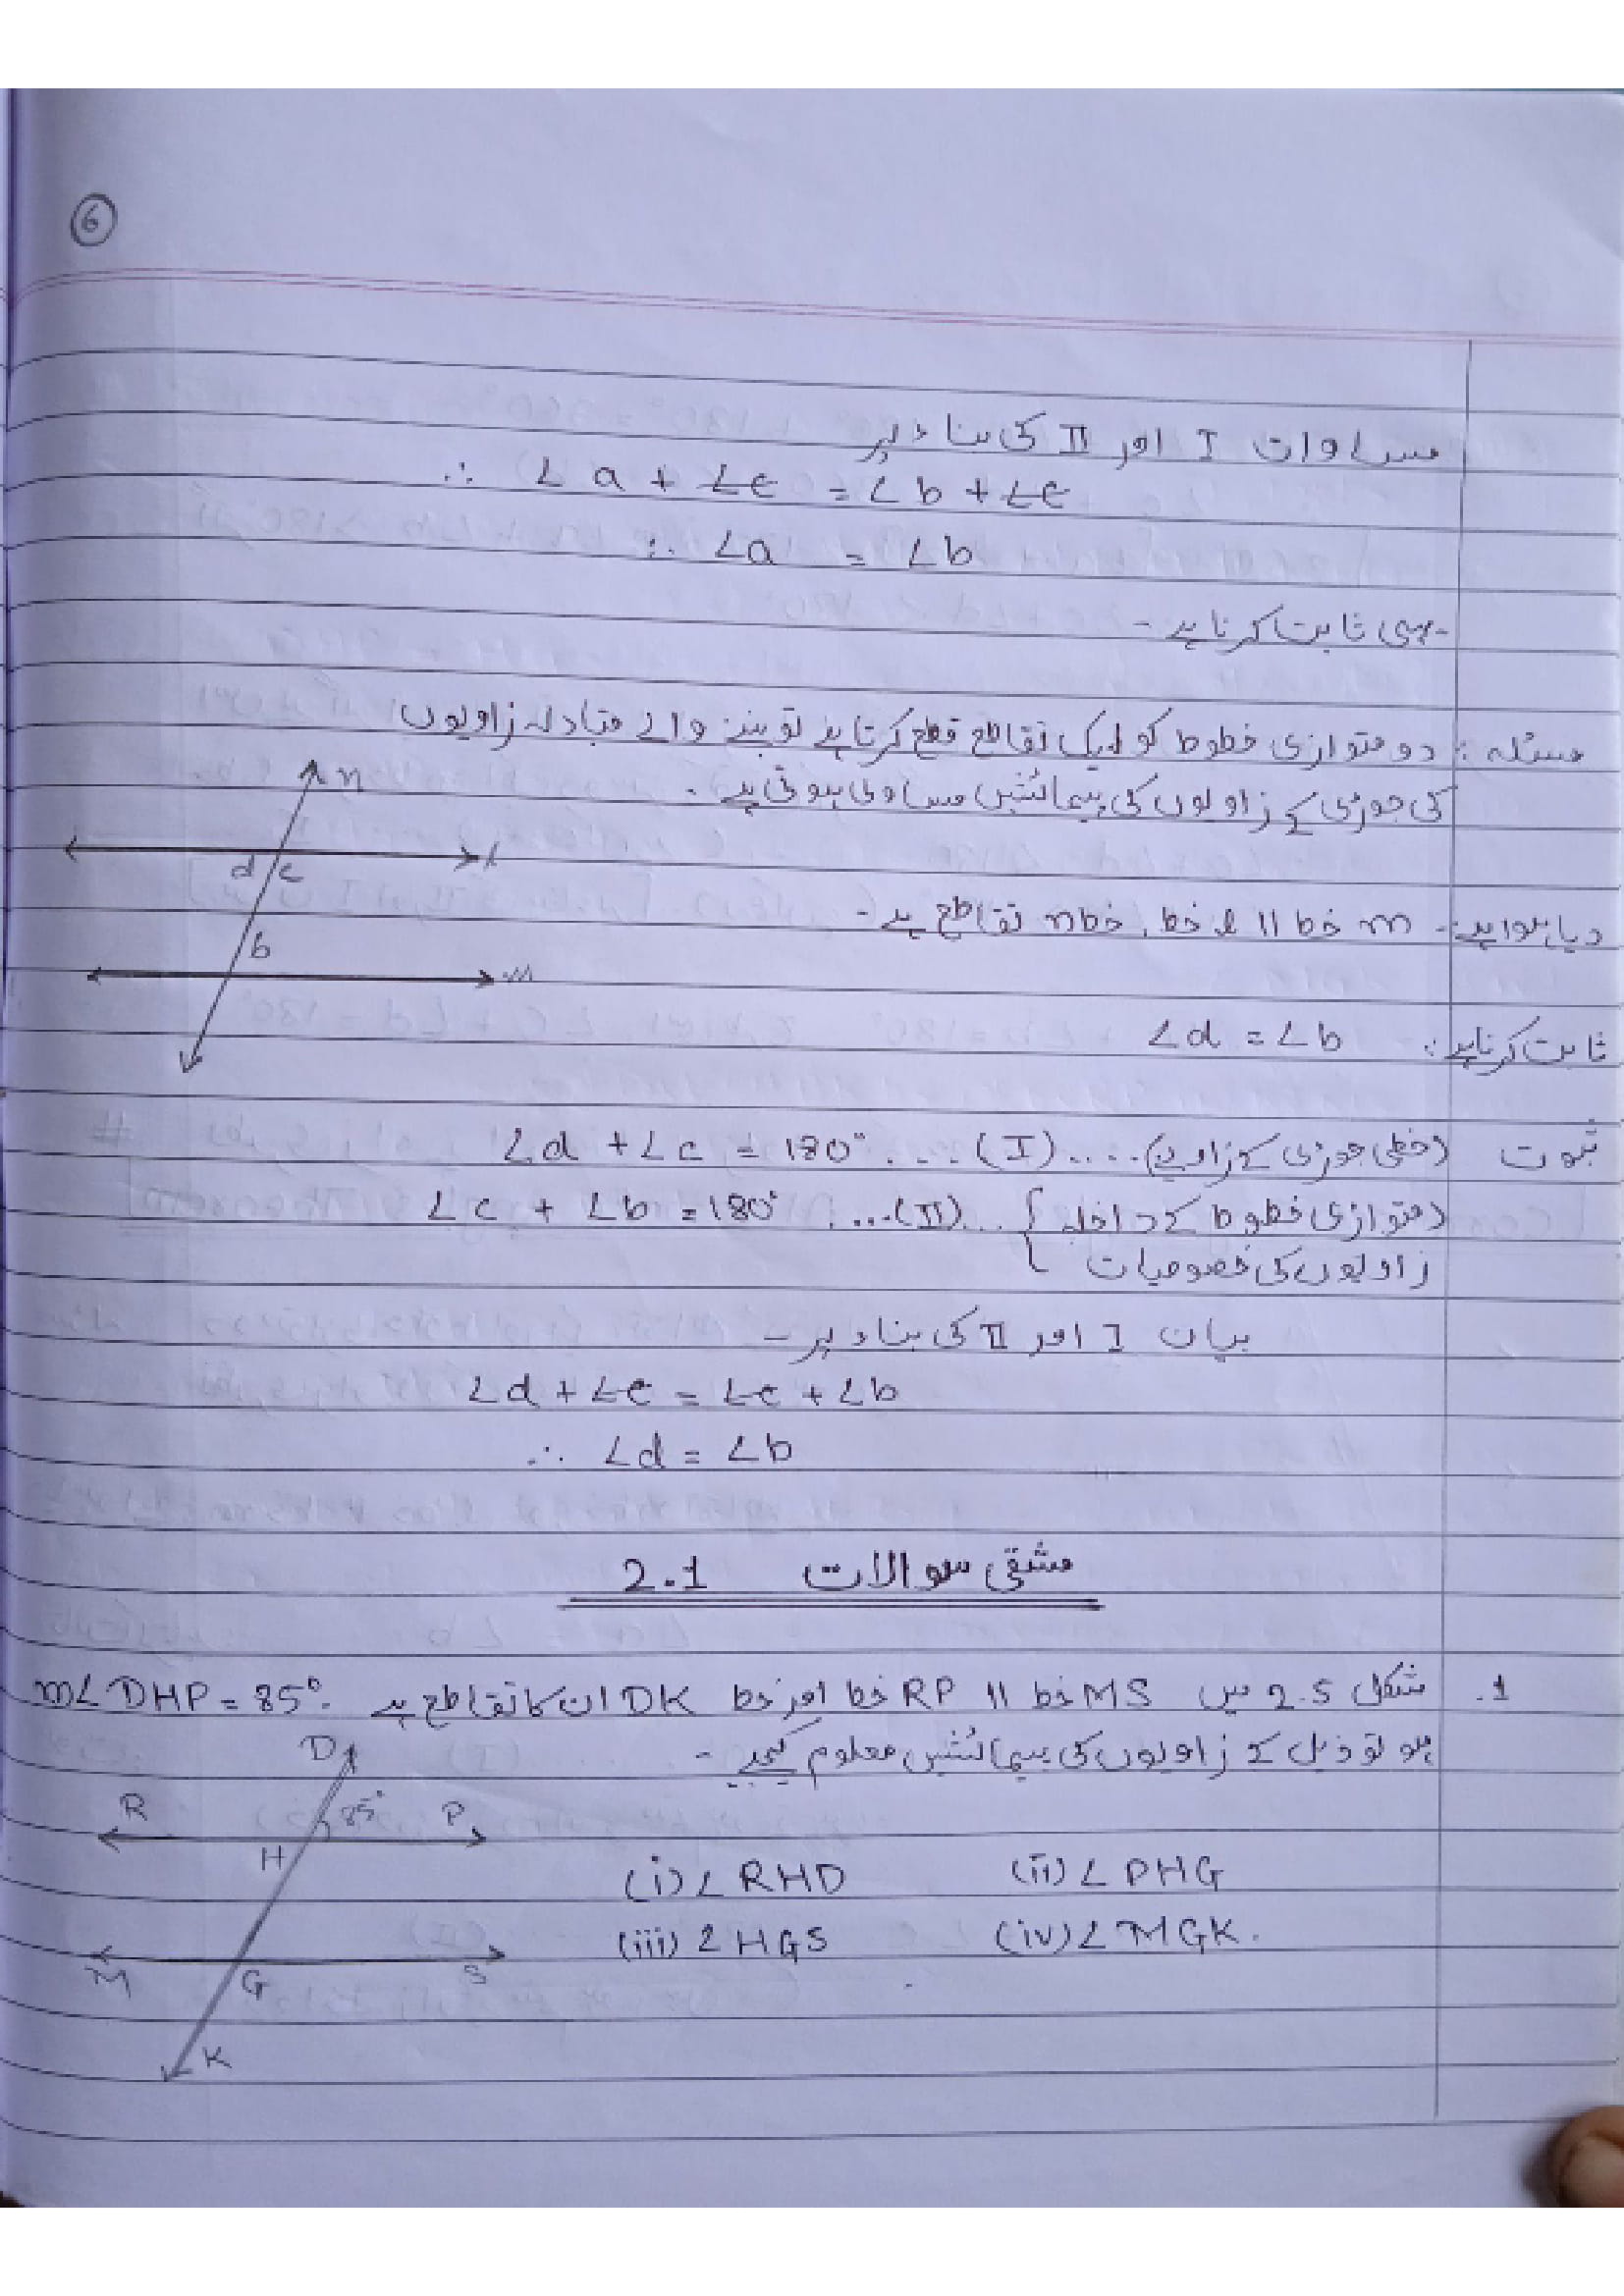 6
مساوات I اور II کی بناء پر
∴ ∠a + ∠c = ∠b + ∠c
∴ ∠a = ∠b
یہی ثابت کرنا ہے -
مسئلہ : دو متوازی خطوط کو ایک تقاطع قطع کرتا ہے تو بننے والے متبادلہ زاویوں
کی جوڑی کے زاویوں کی پیمائشیں مساوی ہوتی ہے .
n
l
d c
b
m
دیا ہوا ہے :- خط m || خط l ، خط n تقاطع ہے -
ثابت کرنا ہے : ∠d = ∠b
ثبوت ∠d + ∠c = 180° ....(I).... (خطی جوڑی کے زاویے)
∠c + ∠b = 180° ....(II)... { (متوازی خطوط کے داخلہ
زاویوں کی خصوصیات
بیان I اور II کی بناء پر -
∠d + ∠c = ∠c + ∠b
∴ ∠d = ∠b
مشقی سوالات 2.1
1. شکل 2.5 میں خط MS || خط RP اور خط DK ان کا تقاطع ہے m∠DHP = 85°.
ہو تو ذیل کے زاویوں کی پیمائشیں معلوم کیجیے -
D
R 85° P
H
(i) ∠RHD (ii) ∠PHG
(iii) ∠HGS (iv) ∠MGK.
M G S
K